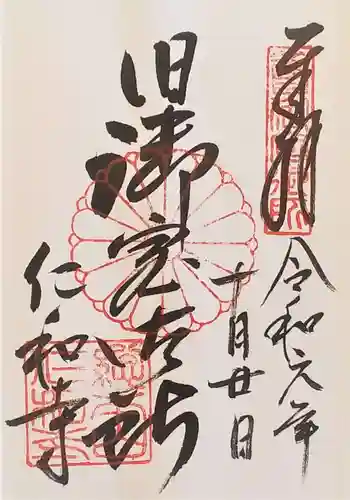 奉拝
令和元年
十月廿日
旧御室御所
仁和寺